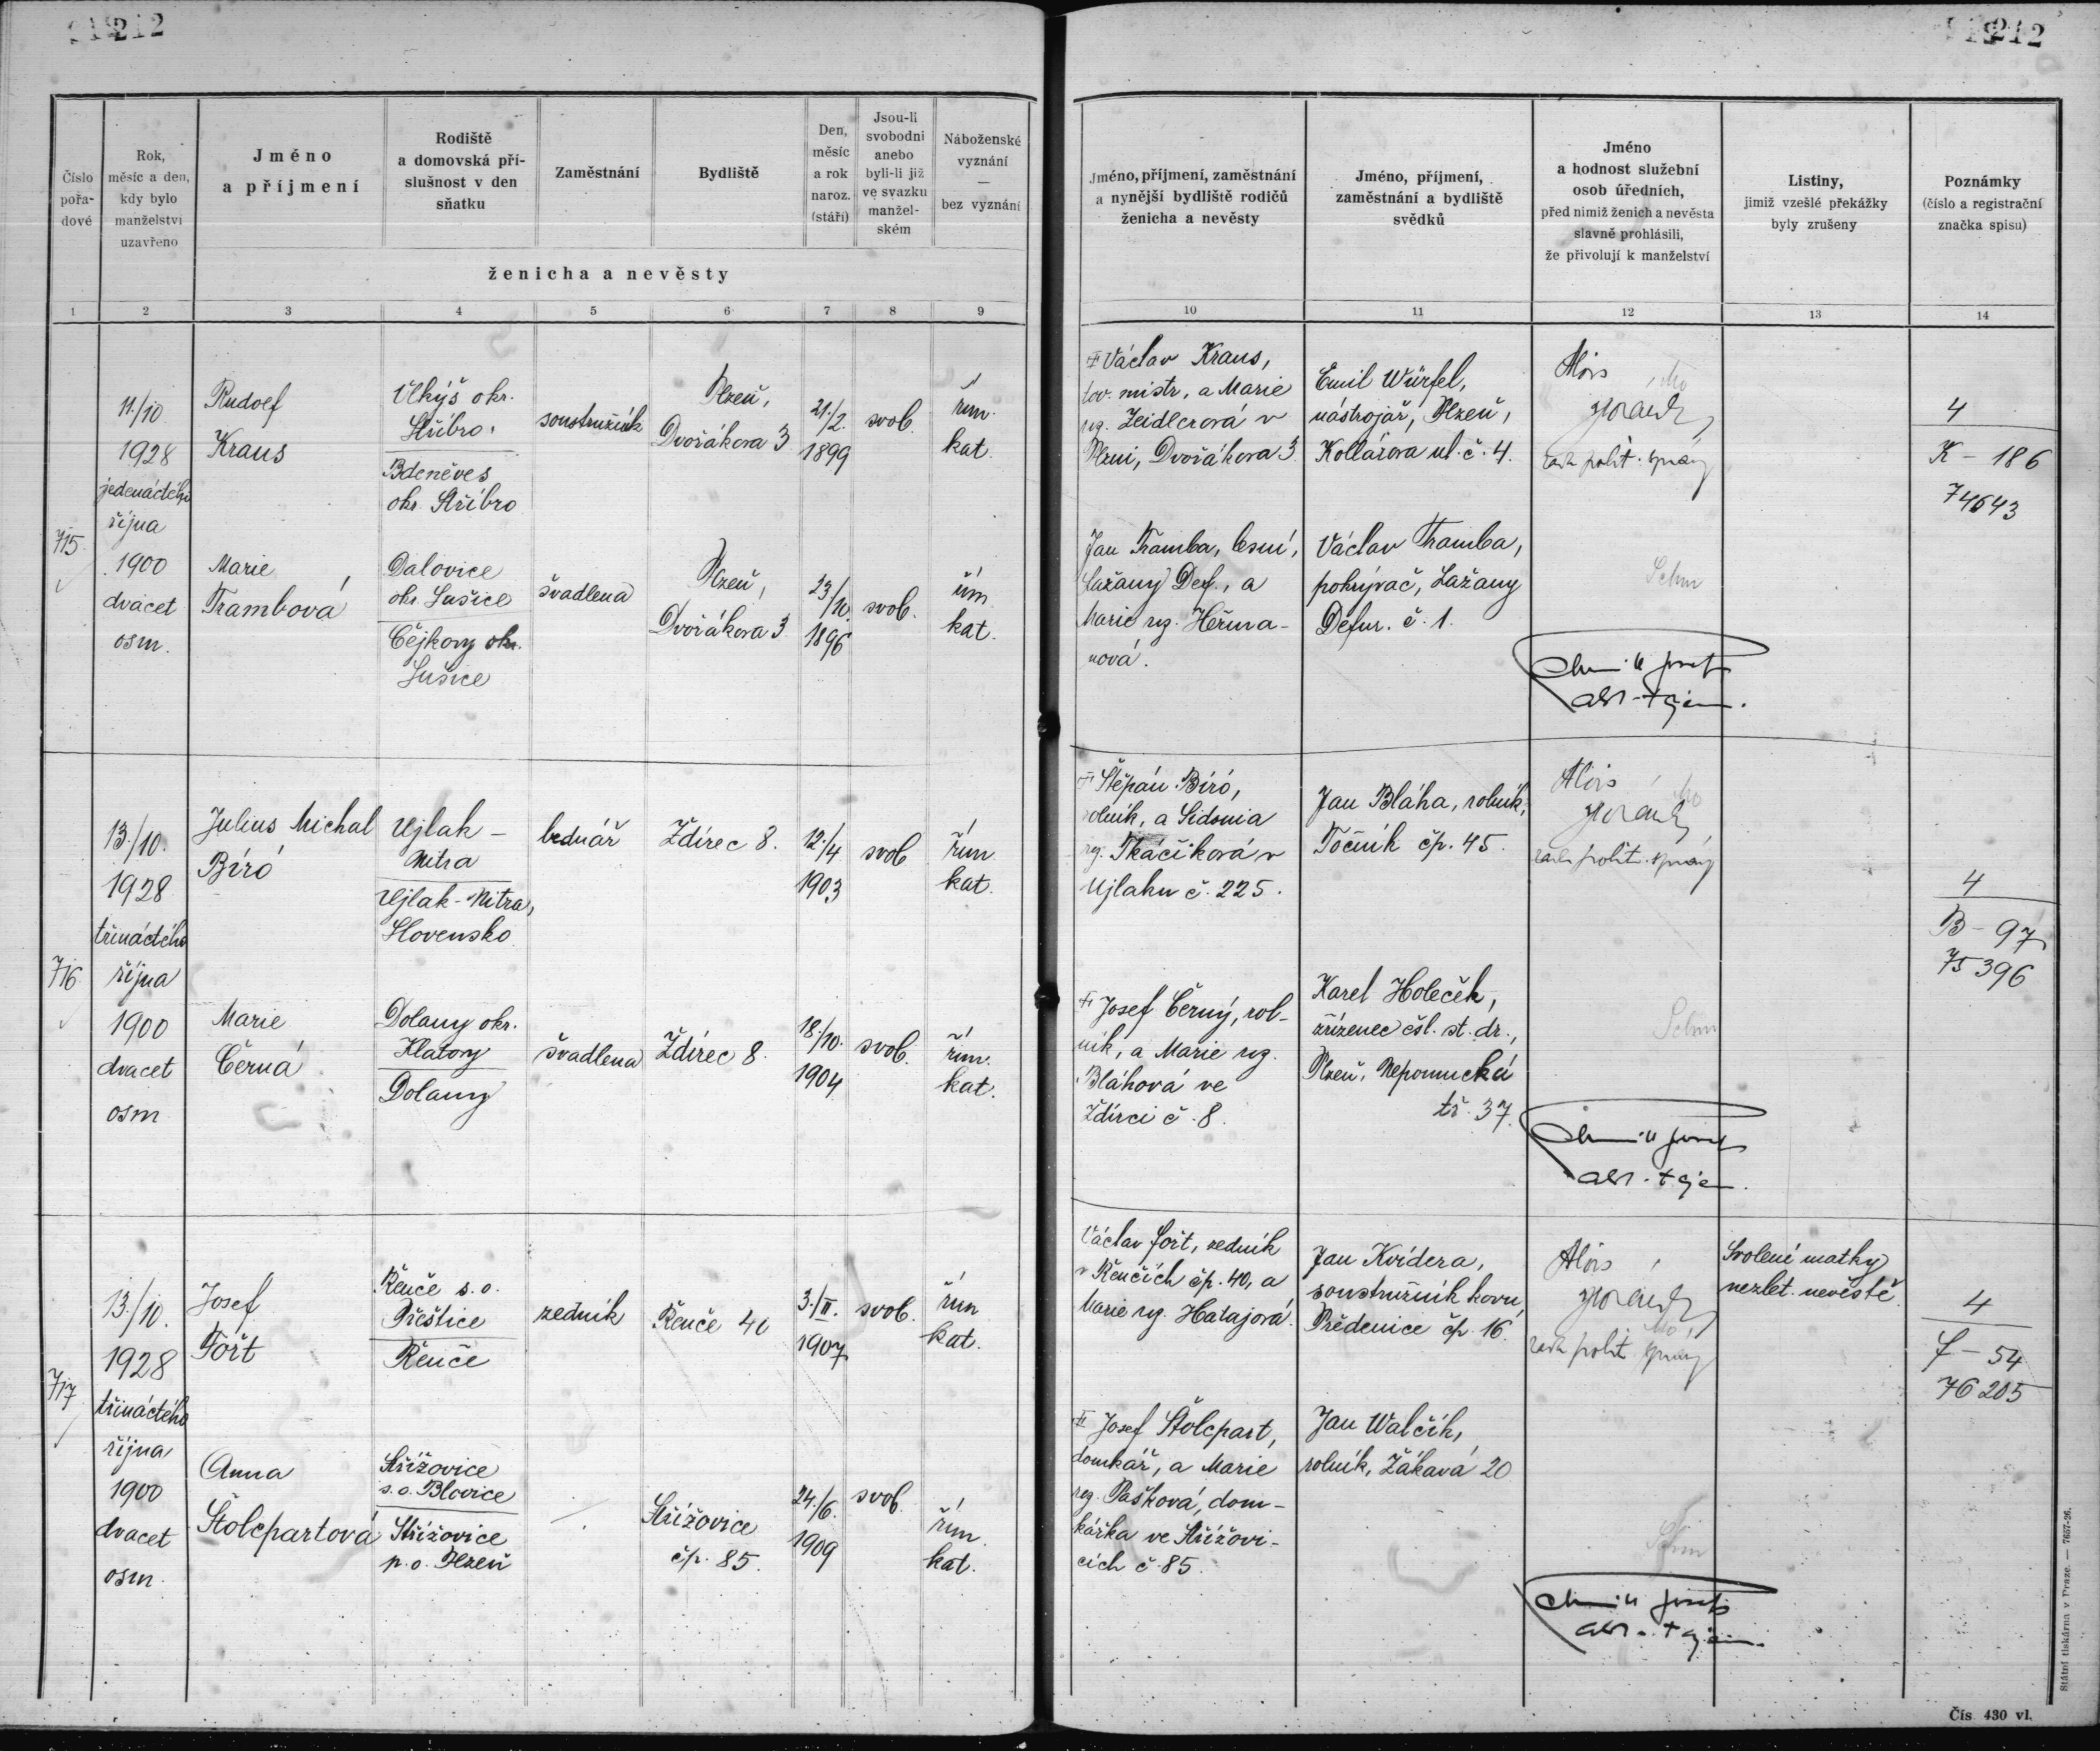 212
212
Číslo
pořa-
dové
Rok,
měsíc a den,
kdy bylo
manželství
uzavřeno
Jméno
a příjmení
Rodiště
a domovská pří-
slušnost v den
sňatku
Zaměstnání
Bydliště
Den,
měsíc
a rok
naroz.
(stáří)
Jsou-li
svobodni
anebo
byli-li již
ve svazku
manžel-
ském
Náboženské
vyznání
—
bez vyznání
ženicha a nevěsty
Jméno, příjmení, zaměstnání
a nynější bydliště rodičů
ženicha a nevěsty
Jméno, příjmení,
zaměstnání a bydliště
svědků
Jméno
a hodnost služební
osob úředních,
před nimiž ženich a nevěsta
slavně prohlásili,
že přivolují k manželství
Listiny,
jimiž vzešlé překážky
byly zrušeny
Poznámky
(číslo a registrační
značka spisu)
1 2 3 4 5 6 7 8 9 10 11 12 13 14
715
11./10.
1928
jedenáctého
října
1900
dvacet
osm.
Rudolf
Kraus
Vlkýš okr.
Stříbro.
Bdeněves
okr. Stříbro
soustružník
Plzeň,
Dvořákova 3
21./2.
1899
svob.
řím.
kat.
Václav Kraus,
tov. mistr, a Marie
roz. Zeidlerová v
Plzni, Dvořákova 3.
Emil Würfel,
nástrojař, Plzeň,
Kollárova ul. č. 4.
Alois
rada polit. správy
4
K - 186
74643
Marie
Trambová
Dalovice
okr. Sušice
Čejkovy okr.
Sušice
švadlena
Plzeň,
Dvořákova 3
23./10.
1896
svob.
řím.
kat.
Jan Tramba, lesní,
Lažany Def., a
Marie roz. Heřma-
nová.
Václav Tramba,
pokrývač, Lažany
Defur. č. 1.
Schm
716
13./10.
1928
třináctého
října
1900
dvacet
osm
Julius Michal
Bíró
Ujlak -
Nitra
Ujlak - Nitra,
Slovensko
bednář
Ždírec 8.
12./4
1903
svob.
řím.
kat.
Štěpán Bíró,
rolník, a Sidonia
roz. Tkáčiková v
Ujlaku č. 225.
Jan Bláha, rolník,
Točník čp. 45.
Alois
rada polit. správy
4
B - 97
75396
Marie
Černá
Dolany okr.
Klatovy
Dolany
švadlena
Ždírec 8.
18./10.
1904
svob.
řím.
kat.
Josef Černý, rol-
ník, a Marie roz.
Bláhová ve
Ždírci č. 8.
Karel Holeček,
zřízenec čsl. st. dr.,
Plzeň, Nepomucká
tř. 37.
Schm
717
13./10.
1928
třináctého
října
1900
dvacet
osm.
Josef
Fořt
Řenče s. o.
Přeštice
Řenče
zedník
Řenče 40
3./II.
1907
svob.
řím.
kat.
Václav Fořt, zedník
v Řenčích čp. 40, a
Marie roz. Hatajová.
Jan Kvídera,
soustružník kovu,
Předenice čp. 16.
Alois
rada polit. správy
Svolení matky
nezlet. nevěstě
4
F - 54
76205
Anna
Štolcpartová
Střížovice
s. o. Blovice
Střížovice
p. o. Plzeň
Střížovice
čp. 85.
24./6.
1909
svob.
řím.
kat.
Josef Štolcpart,
domkář, a Marie
roz. Pašková, dom-
kářka ve Střížovi-
cích č. 85.
Jan Walčík,
rolník, Žákavá 20
Schm
Státní tiskárna v Praze. — 7657-26.
Čís. 430 vl.